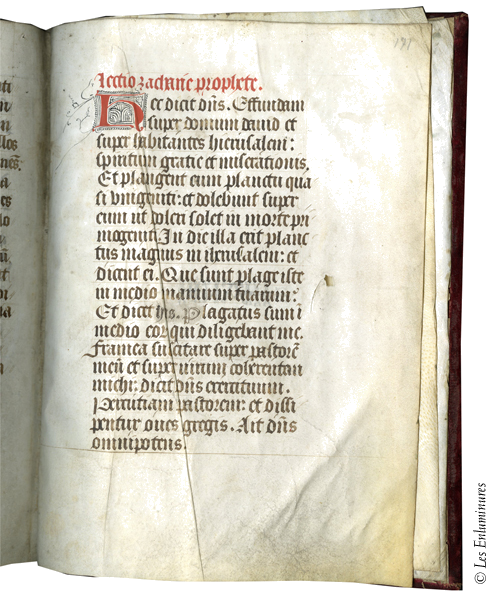 191
Lectio zacharie prophete.
Hec dicit dn̄s. Effundam
super domum dauid et
super habitantes hierusalem:
spiritum gratie et miserationis.
Et plangent eum planctu qua
si vnigeniti: et dolebunt super
eum ut doleri solet in morte pri
mogeniti. In die illa erit planc
tus magnus in iherusalem: et
dicent ei. Que sunt plage iste
in medio manuum tuarum:
Et dicet his. Plagatus sum i
medio eor qui diligebant me.
Framea suscitare super pastorē
meū et super uirum coherentem
michi: dicit dn̄s exercituum.
Percutiam pastorem: et dissi
pentur oues gregis. Ait dn̄s
omnipotens.
© Les Enluminures